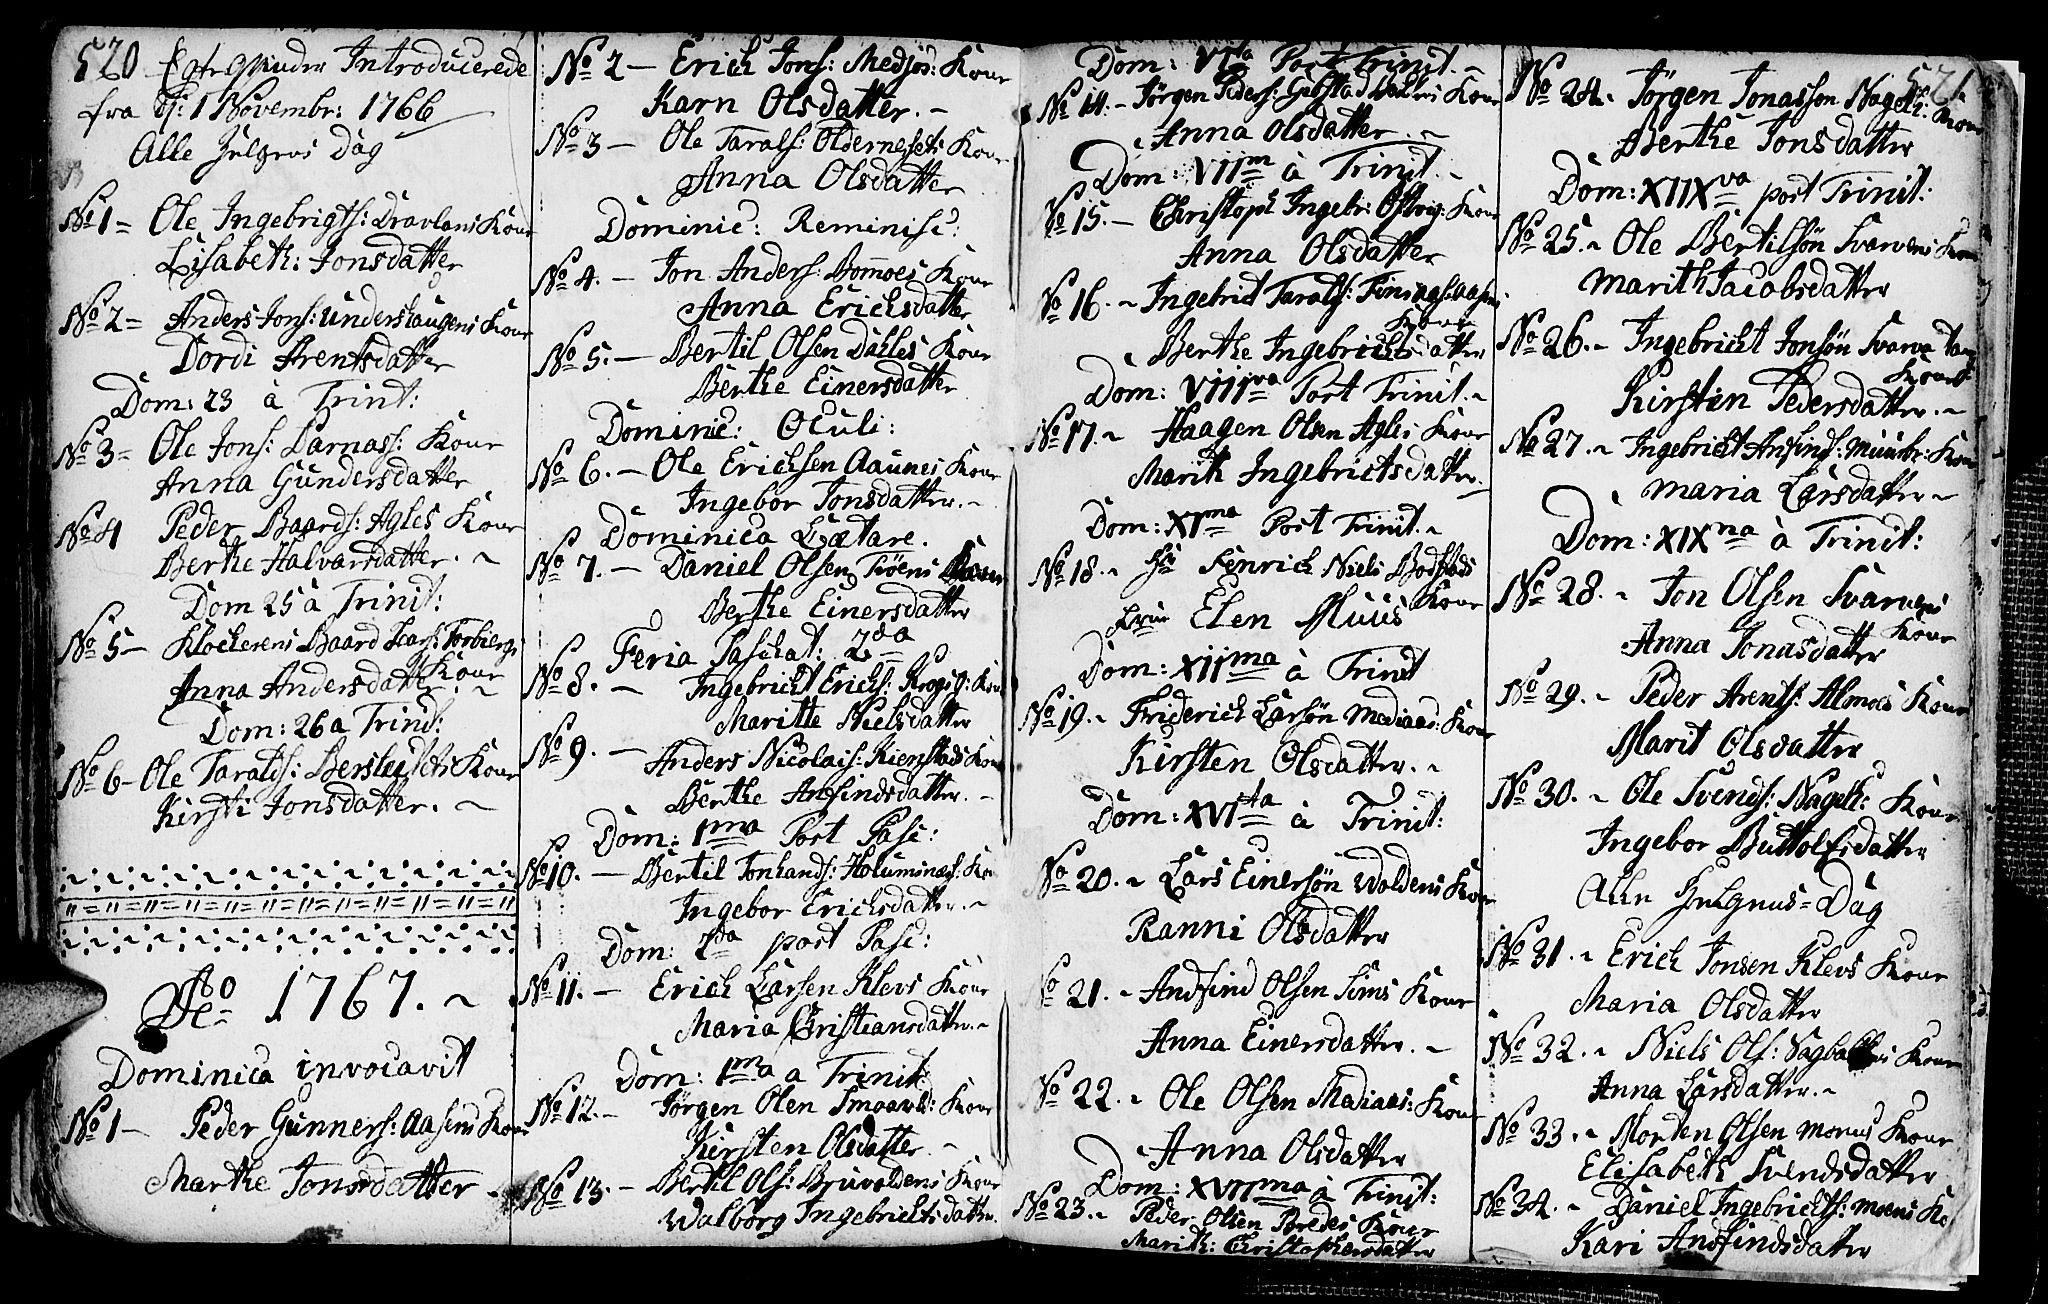 520 Egte Qvinder Introducerede
fra d: 1 Novembr: 1766
Alle Helgens Dag
No 1 = Ole Ingebrigts: Dravlans Kone
Lisabeth: Jonsdatter
No 2 = Anders Jons: Underhaugens Kone
Dordi Arentsdatter
Dom: 23 à Trint:
No 3 = Ole Jons: Darnass: Kone
Anna Gundersdatter
No 4 Peder Baards: Agles Kone
Berthe Halvarsdatter. ~
Dom 25 à Trinit:
No 5 — Klockerens Baard Lars: Torbergs
Kone
Anna Andersdatter. ~
Dom: 26 a Trinit:
No 6 - Ole Taralds: Kone
Kirsti Jonsdatter. ~
Ao 1767. ~
Dominica invocavit
No 1 — Peder Gunners: Aasens Kone
Marthe Jonsdatter ~
No 2 — Erich Jons: Medjos: Kone
Karn Olsdatter. ~
No 3 — Ole Tarals: Oldernesets Kone
Anna Olsdatter
Dominic: Reminisc:
No 4. — Jon Anders: Bomoes Kone
Anna Erichsdatter
No 5. — Bertil Olsen Dahles Kone
Berthe Einersdatter
Dominic: Oculi:
No 6. — Ole Erichsen Aaunes Kone
Ingebor Jonsdatter. ~
Dominica Lætare.
No 7. — Daniel Olsen Kone
Berthe Einersdatter
Feria Paschat: 2da
No 8. — Ingebricht Erichs: Krogsg: Kone
Maritte Nielsdatter
No 9. — Anders Nicolais: Kienstads Kone
Berthe Anfindsdatter. ~
Dom: 1ma Post Pasc:
No 10. — Bertil Tonlands: Holumines: Ko
Ingebor Erichsdatter. ~
Dom: 2da post Pasc:
No 11. — Erich Larsen Klevs Kone
Maria Christiansdatter. ~
Dom: 1ma a Trinit
No 12. — Jørgen Olen Smaavold: Kone
Kirsten Olsdatter. ~
No 13. — Bertel Ols: Bruvoldens Kone
Walborg Ingebrichtsdatter.
Dom: VIta Post Trinit. ~
No 14. ~ Jørgen Peders: Kone
Anna Olsdatter. ~
Dom: VIIm à Trinit. ~
No 15. — Christoph Ingebr: Ostvig: Kone
Anna Olsdatter
No 16. ~ Ingebrict Taralds:
Kone
Berthe Ingebrichtsdatter
Dom: VIIIva Post Trinit. ~
No 17. ~ Haagen Olsen Agles Kone
Marith Ingebrictsdatter.
Dom: XIma Post Trinit. ~
No 18. ~ Hr Henrich Niels Bodstads
Kone
Elen Muus
Dom: XIIma à Trinit
No 19. ~ Friderich Larsøn Mediaas: Kone
Kirsten Olsdatter. ~
Dom: XVIta à Trinit:
No 20. ~ Lars Einersøn Woldens Kone
Ranni Olsdatter
No 21. ~ Andfind Olsen Siems Kone
Anna Einersdatter. ~
No 22. ~ Ole Olsen Mediaas: Kone
Anna Olsdatter
Dom: XVIIma à Trinit:
No 23. ~ Peder Olsen Bredes Kone
Marith: Christophersdatter
521
No 24. Jørgen Jonasson Nagels: Kone
Berthe Jonsdatter
Dom: XIIXva post Trinit:
No 25. ~ Ole Bertilsøn Svarvens Kone
Marith Jacobsdatter
No 26. ~ Ingebricht Jonsøn Svarva
Kone
Kirsten Pedersdatter. ~
No 27. ~ Ingebricht Anfinds: Muusbr: Kone
Maria Larsdatter ~
Dom: XIXna à Trinit:
No 28. ~ Jon Olsen Svarvens
Kone
Anna Jonasdatter
No 29. ~ Peder Arents: Almoes Kone
Marit Olsdatter
No 30. ~ Ole Svends: Nagels: Kone
Ingebor Buttolfsdatter
Alle Helgens=Dag
No 31. ~ Erich Jonsen Klevs Kone
Maria Olsdatter
No 32. ~ Niels Ols: Kone
Anna Larsdatter. ~
No 33. ~ Morten Olsen Monus Kone
Elisabeth Svendsdatter
No 34. ~ Daniel Ingebrichts: Moens Ko
Kari Andfindsdatter